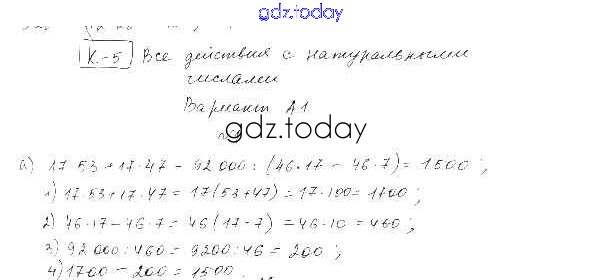 gdz.today
К-5 Все действия с натуральными
числами
Вариант А1
gdz.today
а) 17·53+17·47-92000:(46·17-46·7)=1500;
1) 17·53+17·47=17(53+47)=17·100=1700;
2) 46·17-46·7=46(17-7)=46·10=460;
3) 92000:460=9200:46=200;
4) 1700-200=1500.